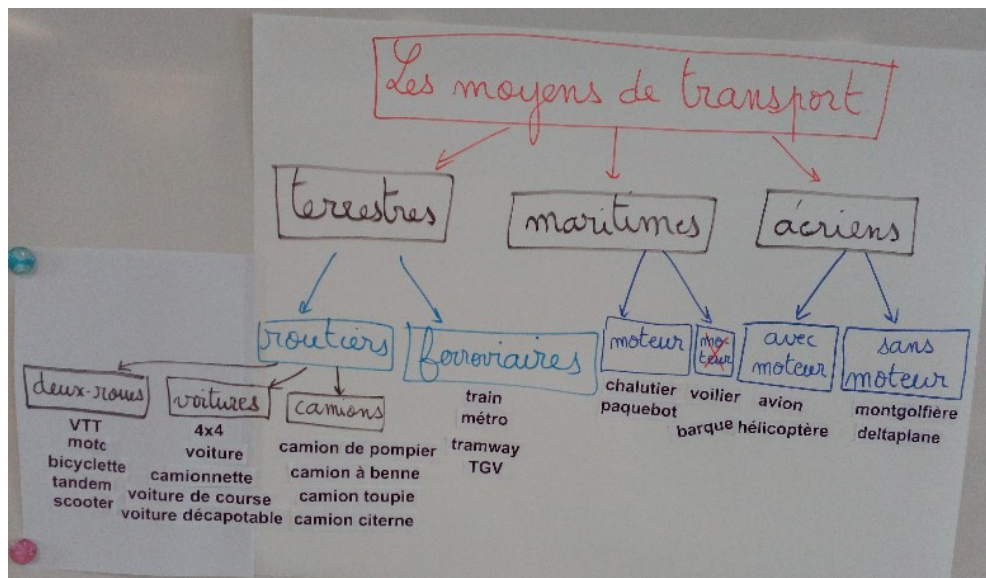 Les moyens de transport
terrestres
maritimes
aériens
routiers
ferroviaires
moteur
moteur
avec
moteur
sans
moteur
deux-roues
voitures
camions
VTT
moto
bicyclette
tandem
scooter
4x4
voiture
camionnette
voiture de course
voiture décapotable
camion de pompier
camion à benne
camion toupie
camion citerne
train
métro
tramway
TGV
chalutier
paquebot
voilier
barque
avion
hélicoptère
montgolfière
deltaplane